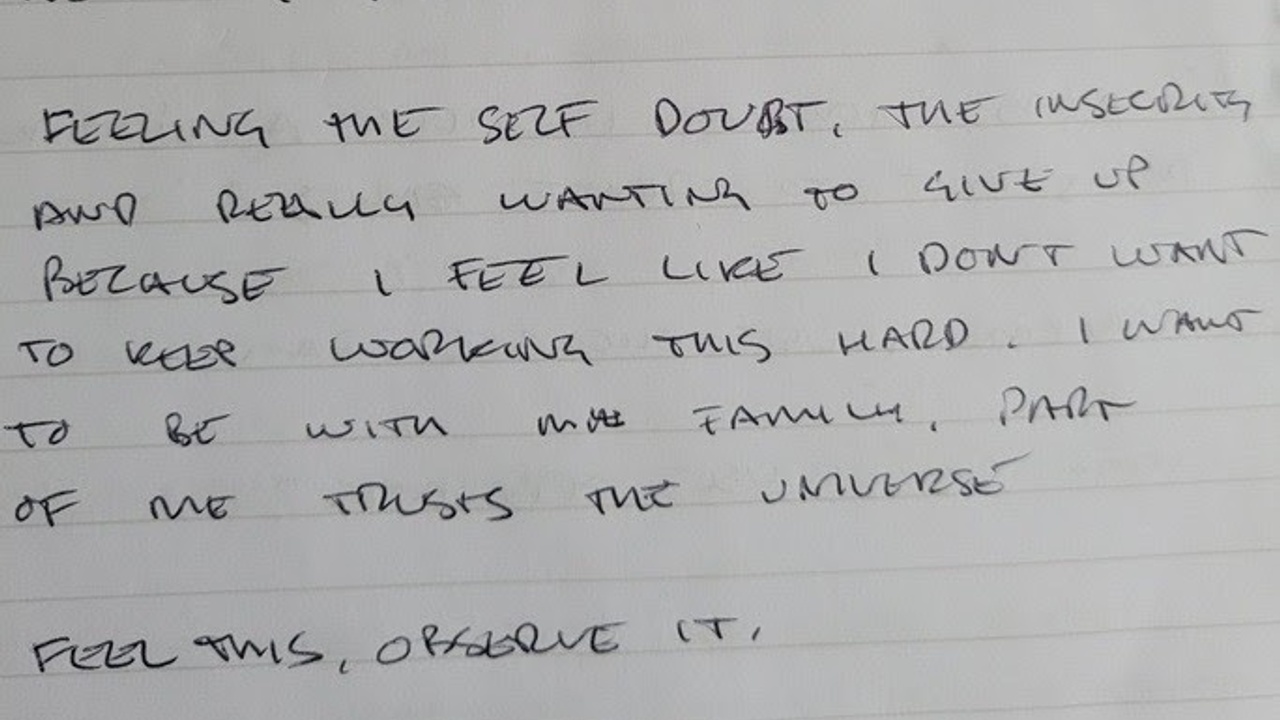 FEELING THE SELF DOUBT, THE INSECURITY
AND REALLY WANTING TO GIVE UP
BECAUSE I FEEL LIKE I DON'T WANT
TO KEEP WORKING THIS HARD. I WANT
TO BE WITH MY FAMILY. PART
OF ME TRUSTS THE UNIVERSE
FEEL THIS, OBSERVE IT.